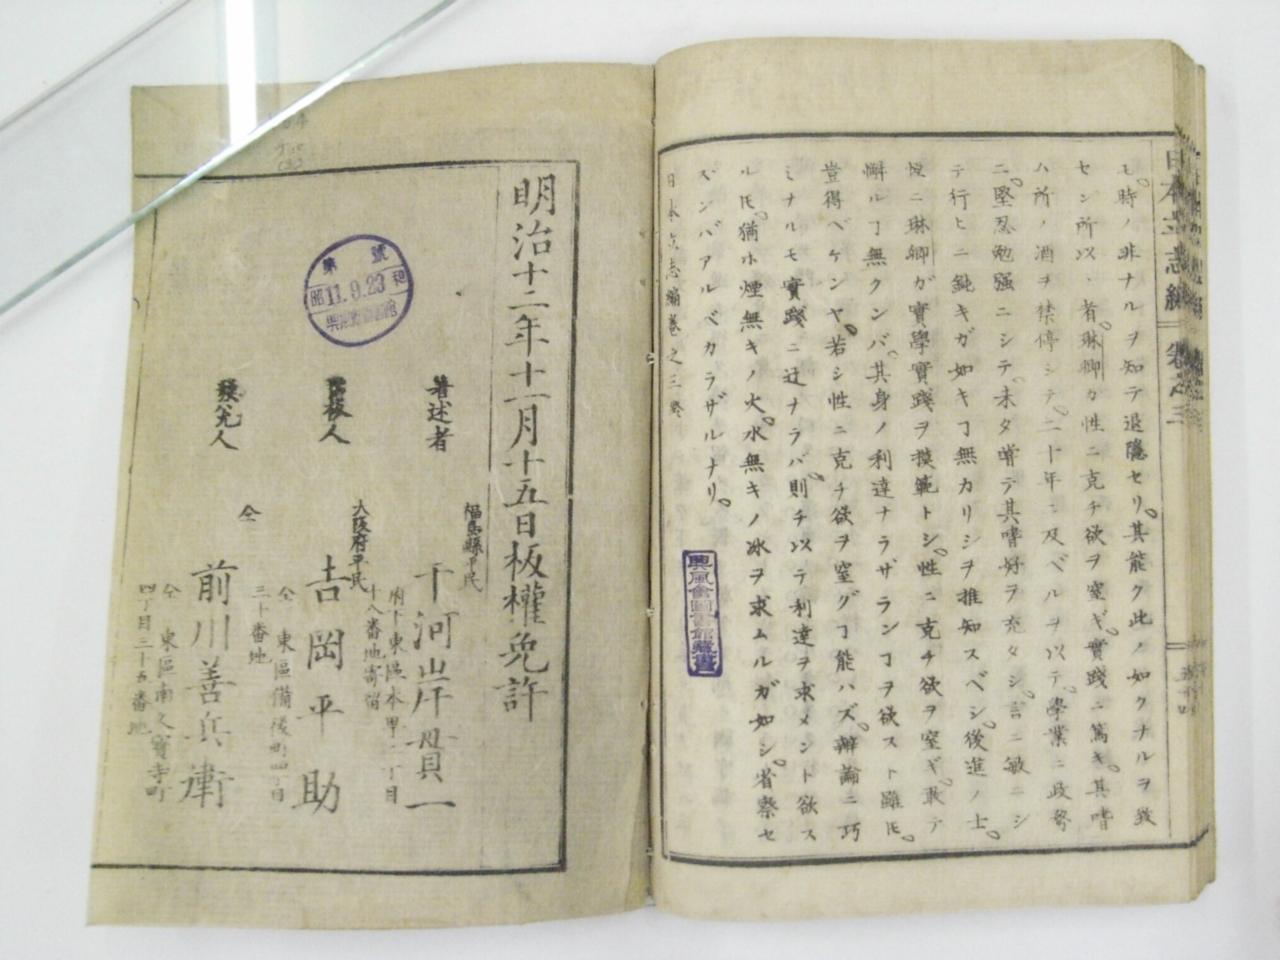 モ時ノ非ナルヲ知テ退隱セリ其能ク此ノ如クナルヲ致
セン所以ノ者琳卿カ性ニ克チ欲ヲ窒ギ實踐ニ篤キ其嗜
ハ所ノ酒ヲ禁停シテ二十年ニ及ベルヲ以テ學業ニ政務
ニ堅忍勉强ニシテ未タ嘗テ其嗜好ヲ充タシ言ニ敏ニシ
テ行ヒニ鈍キガ如キヿ無カリシヲ推知スベシ後進ノ士
ニ琳卿ガ實學實踐ヲ模範トシ性ニ克チ欲ヲ窒ギ敢テ
懈ルヿ無クンバ其身ノ利達ナラザランヿヲ欲スト雖𪜈
豈得ベケンヤ若シ性ニ克チ欲ヲ窒グヿ能ハズ辯論ニ巧
ミナルモ實踐ニ迂ナラバ則チ以テ利達ヲ求メント欲ス
ル𪜈猶ホ煙無キノ火水無キノ冰ヲ求ムルガ如シ省察セ
ズンバアルベカラザルナリ
日本立志編卷之三終
日本立志編 卷之三
興風會圖書館藏書
明治十二年十一月十五日板權免許
著述者
福島縣平民
干河岸貫一
府下東區本町一丁目
十八番地寄留
出板人
大阪府平民
吉岡平助
仝 東區備後町四丁目
三十番地
發兌人
仝
前川善兵衛
仝 東區南久寶寺町
四丁目三十五番地
第 號
昭 11.9.23 和